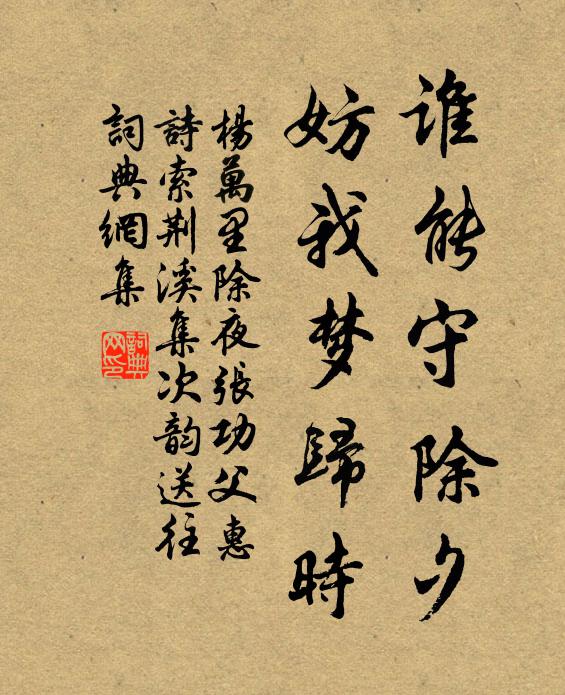 谁能守除夕
妨我梦歸時
楊萬里除夜張功父惠
詩索荆溪集次韵送往
詞典網集
詞典網印